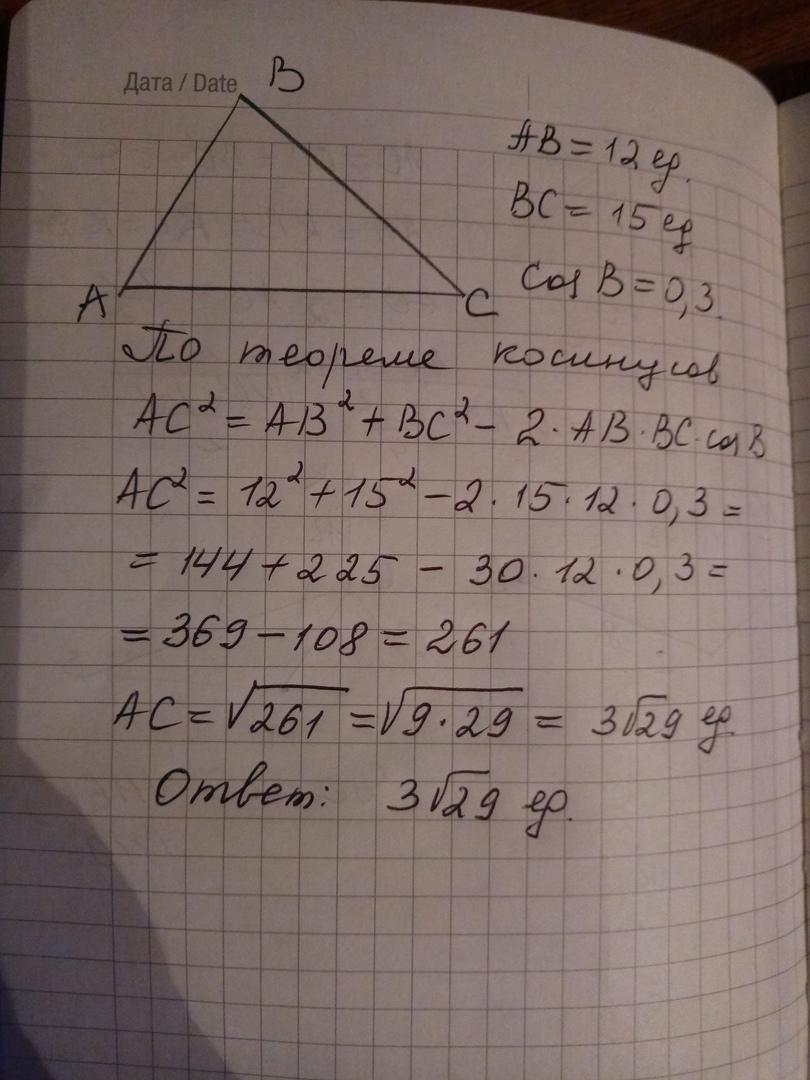 Дата / Date
B
A
C
AB = 12 ед.
BC = 15 ед
cos B = 0,3.
По теореме косинусов
AC² = AB² + BC² - 2 · AB · BC · cos B
AC² = 12² + 15² - 2 · 15 · 12 · 0,3 =
= 144 + 225 - 30 · 12 · 0,3 =
= 369 - 108 = 261
AC = √261 = √9·29 = 3√29 ед.
Ответ: 3√29 ед.